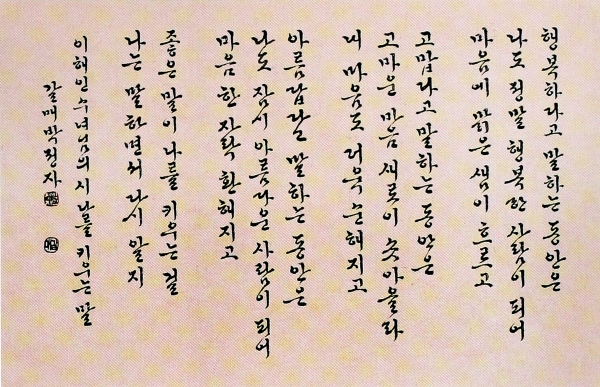 행복하다고 말하는 동안은
나도 정말 행복한 사람이 되어
마음에 맑은 샘이 흐르고
고맙다고 말하는 동안은
고마운 마음 새로이 솟아올라
내 마음도 더욱 순해지고
아름답다고 말하는 동안은
나도 잠시 아름다운 사람이 되어
마음 한 자락 환해지고
좋은 말이 나를 키우는 걸
나는 말하면서 다시 알지
이해인 수녀님의 시 나를 키우는 말
갈매 박정자